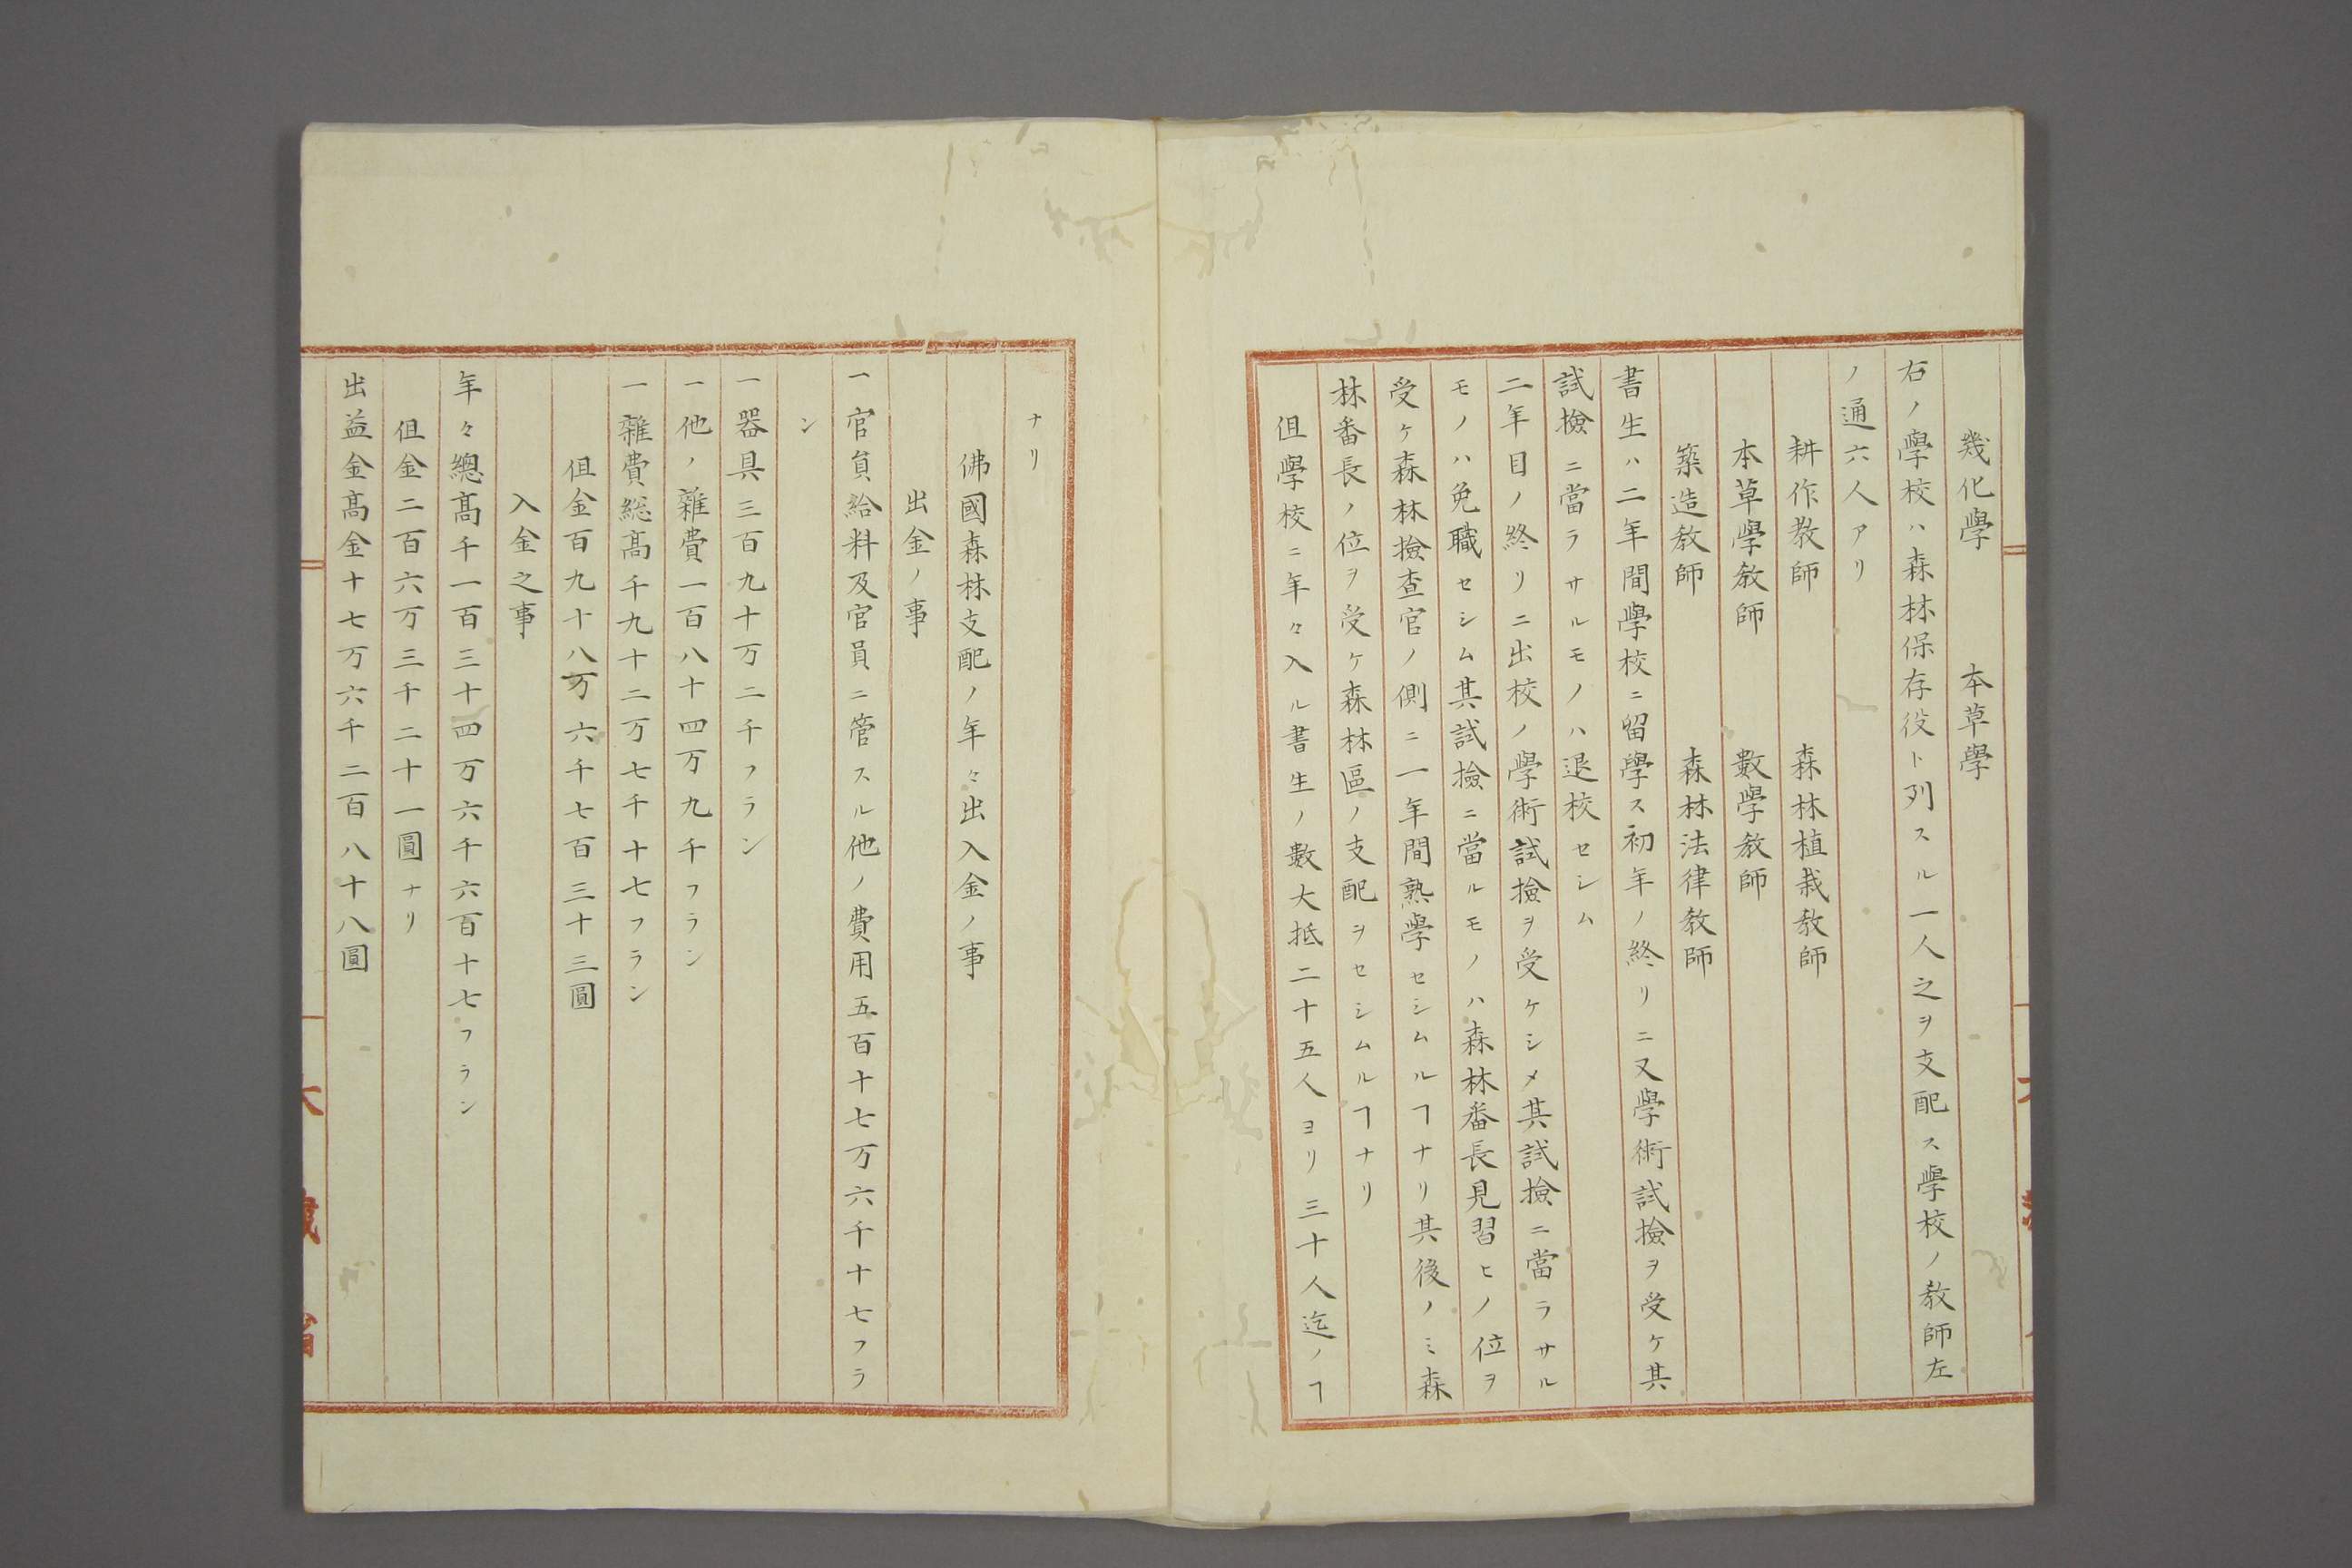 幾化學　　本草學
右ノ學校ハ森林保存役ト列スル一人之ヲ支配ス學校ノ教師左
ノ通六人アリ
耕作教師　　森林植栽教師
本草學教師　　數學教師
築造教師　　森林法律教師
書生ハ二年間學校ニ留學ス初年ノ終リニ又學術試撿ヲ受ケ其
試撿ニ當ラサルモノハ退校セシム
二年目ノ終リニ出校ノ學術試撿ヲ受ケシメ其試撿ニ當ラサル
モノハ免職セシム其試撿ニ當ルモノハ森林番長見習ヒノ位ヲ
受ケ森林撿査官ノ側ニ一年間熟學セシムルヿナリ其後ノミ森
林番長ノ位ヲ受ケ森林區ノ支配ヲセシムルヿナリ
伹學校ニ年々入ル書生ノ數大抵二十五人ヨリ三十人迄ノヿ
ナリ
佛國森林支配ノ年々出入金ノ事
出金ノ事
一官員給料及官員ニ管スル他ノ費用五百十七万六千十七フラ
ン
一器具三百九十万二千フラン
一他ノ雜費一百八十四万九千フラン
一雜費総高千九十二万七千十七フラン
伹金百九十八万六千七百三十三圓
入金之事
年々總髙千一百三十四万六千六百十七フラン
伹金二百六万三千二十一圓ナリ
出益金髙金十七万六千二百八十八圓
大藏省